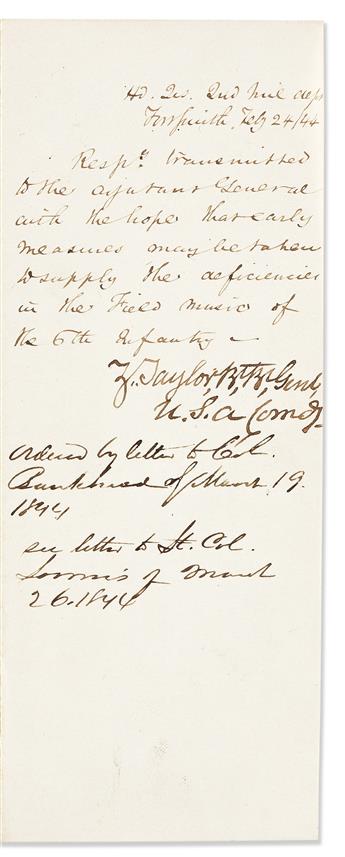 Hd. Qrs. 2nd Mil dept
Fort Smith, Feby 24/44
Respy. transmitted
to the adjutant General
with the hope that early
measures may be taken
to supply the deficiencies
in the Field music of
the 6th Infantry —
Z. Taylor, Bt. Br. Genl,
U. S. A Comdg.
ordered by letter to Col.
Bankhead of March 19.
1844
see letter to Lt. Col.
Loomis of March
26. 1844